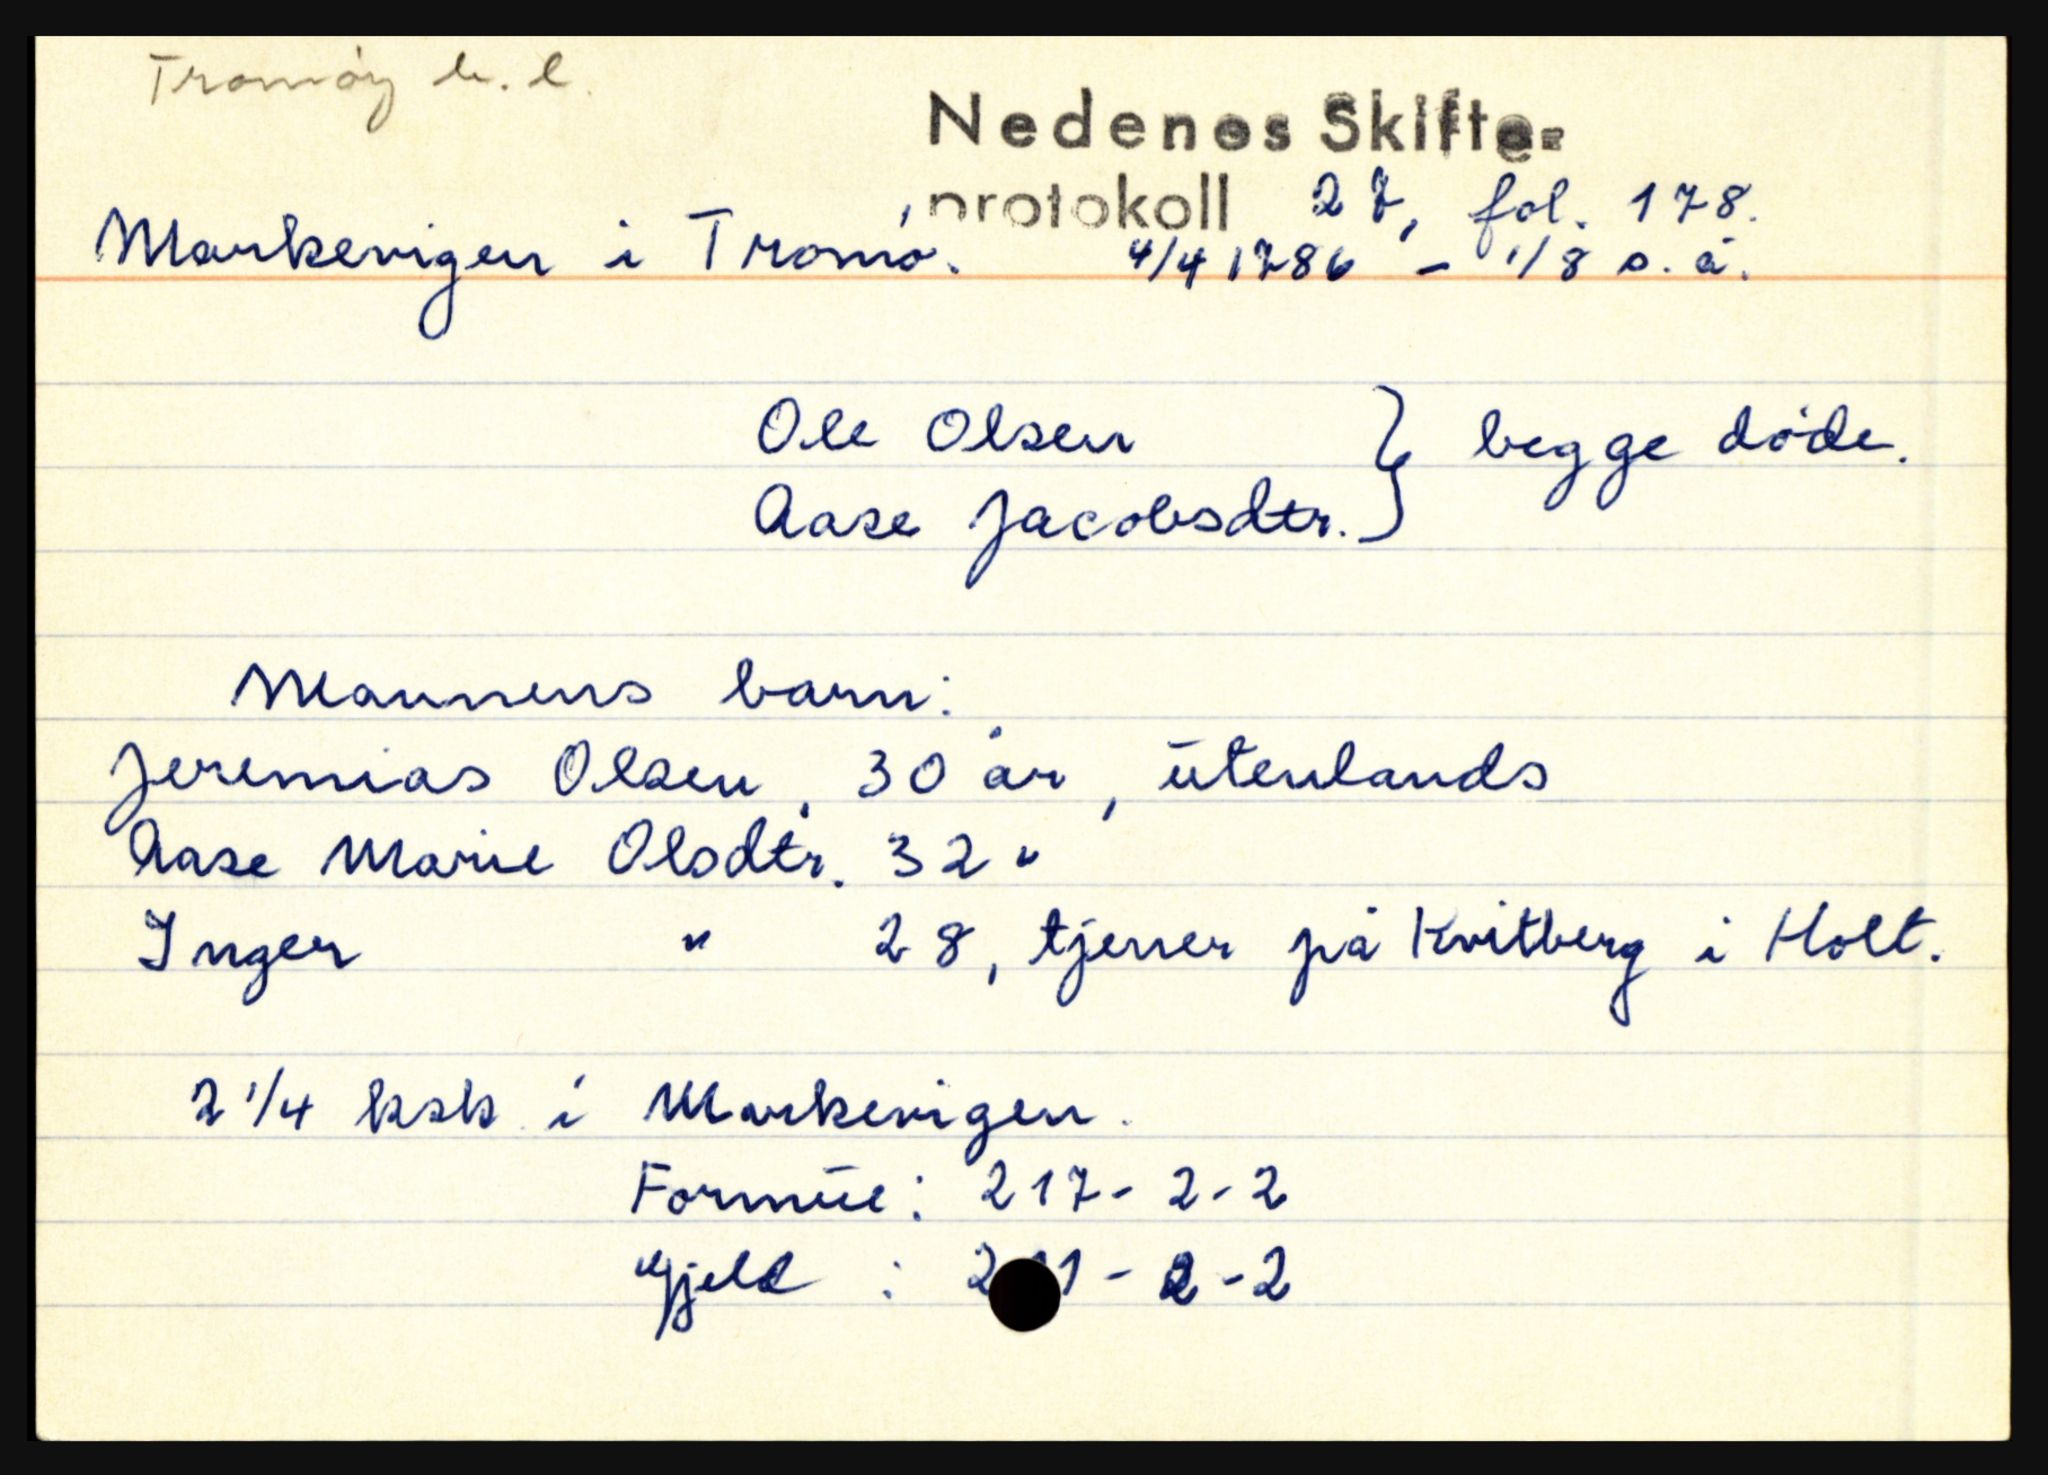 Tromøy h.l.
Nedenes Skifte-
protokoll 27, fol. 178.
Markevigen i Tromø. 4/4 1786 - 1/8 s.å.
Ole Olsen } begge døde.
Aase Jacobsdtr.
Mannens barn:
Jeremias Olsen, 30 år, utenlands
Aase Marie Olsdtr. 32 "
Inger " 28, tjener på Kvitberg i Holt.
2 1/4 ksk i Markevigen.
Formue: 217-2-2
Gjeld : 2 1-2-2